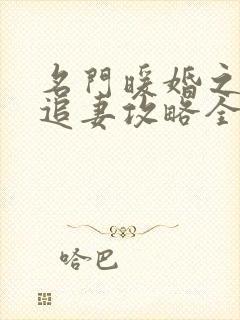 名門暖婚之
追妻攻略全
哈巴